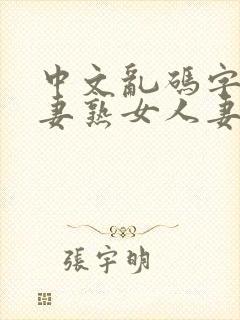 中文亂碼字
妻熟女人妻
張宇明